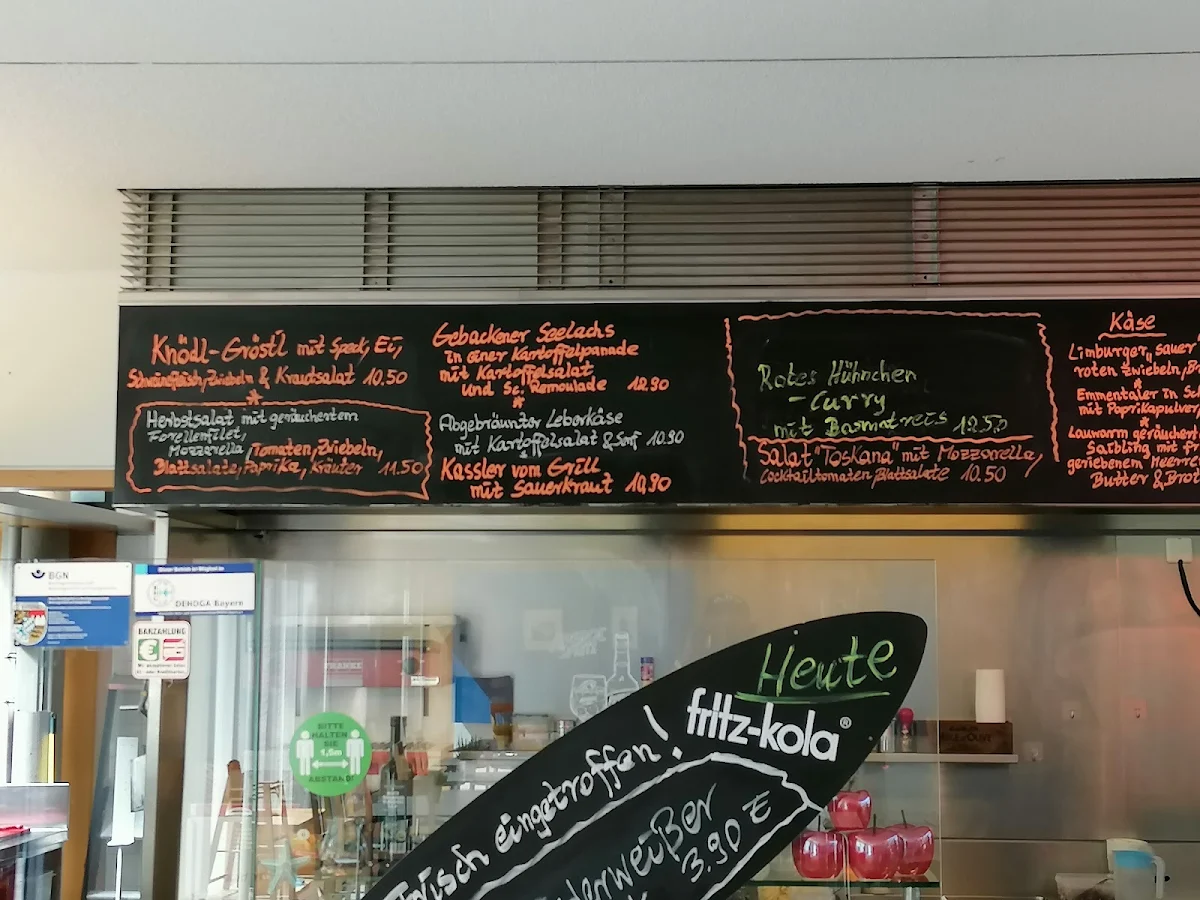 Knödl-Gröstl mit Speck, Ei,
Schweinefleisch, Zwiebeln & Krautsalat 10.50
Herbstsalat mit geräuchertem
Forellenfilet,
Mozzarella, Tomaten, Zwiebeln,
Blattsalate, Paprika, Kräuter 11.50
Gebackener Seelachs
in einer Kartoffelpanade
mit Kartoffelsalat
und Sc. Remoulade 12.90
Abgebräunter Leberkäse
mit Kartoffelsalat & Senf 10.90
Kassler vom Grill
mit Sauerkraut 10,90
Rotes Hühnchen
-Curry
mit Basmatreis 12.50
Salat "Toskana" mit Mozzarella,
Cocktailtomaten, Blattsalate 10.50
Käse
Limburger, sauer
roten Zwiebeln, Br
Emmentaler in Sc
mit Paprikapulver
Lauwarm geräuchert
Saibling mit f
geriebenem Meerre
Butter & Brot
BGN
DEHOGA Bayern
BARZAHLUNG
FRANKE
BITTE
HALTEN
SIE
1,5m
ABSTAND!
Heute
fritz-kola®
Frisch eingetroffen!
derweißer
3.90 €